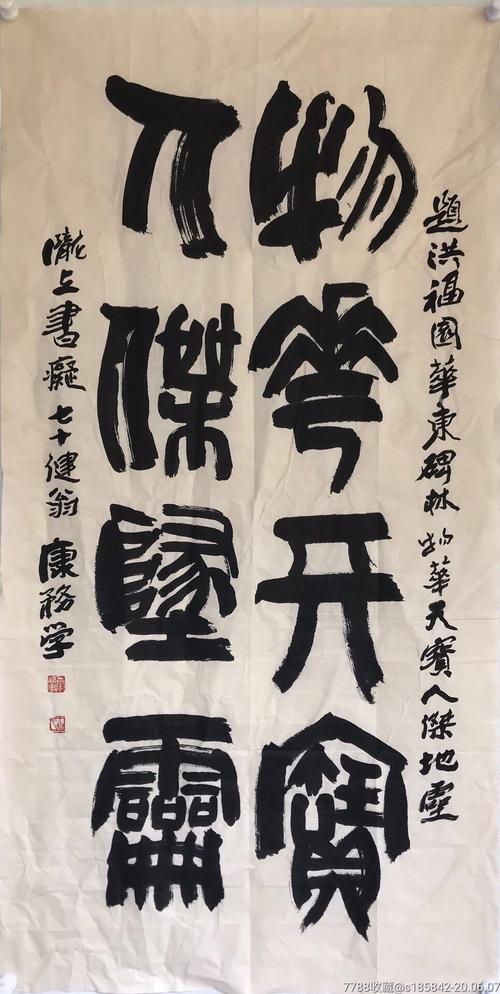 題洪福園華東碑林物華天寶人傑地靈
物華天寶
人傑墬靈
隴上書癡七十健翁康務学
7788收藏@s185842-20.06.07